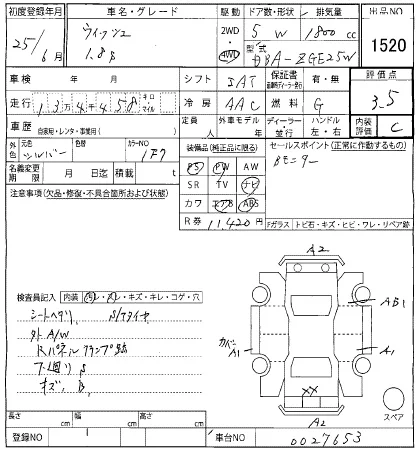 初度登録年月 車名・グレード 駆動 ドア数・形状 排気量 出品NO
25/6月 ウィッシュ 1.8S 2WD 4WD 5 W 1800 cc 1520
型式 DBA-ZGE25W
車検 年 月 シフト IAT 保証書 有・無 評価点
走行 13万4千458 キロ マイル 冷房 AAC 燃料 G 3.5
車歴 自家用・レンタ・事業用( ) 定員 人 外車モデル 年 ディーラー・並行 ハンドル 左・右 内装評価 C
外色 元色 シルバー 色替 カラーNO 1F7 装備品(純正品に限る) セールスポイント(正常に作動するもの)
名義変更期限 月 日迄 積載 t PS PW AW Bモニター
注意事項(欠品・修復・不具合箇所および状態) SR TV ナビ
カワ エアB ABS
R券 11,420円 Fガラス トビ石・キズ・ヒビ・ワレ・リペア跡
A2
検査員記入 内装 ヨゴレ・キズ・キレ・コゲ・穴
シートヘタリ S/Tタイヤ
AB1
外A/W
カバー A1
A1
Rパネルクランプ跡
下廻りS
キズ、B
XX
A2
スペア
長さ cm 幅 cm 高さ cm
登録NO 車台NO 0027653